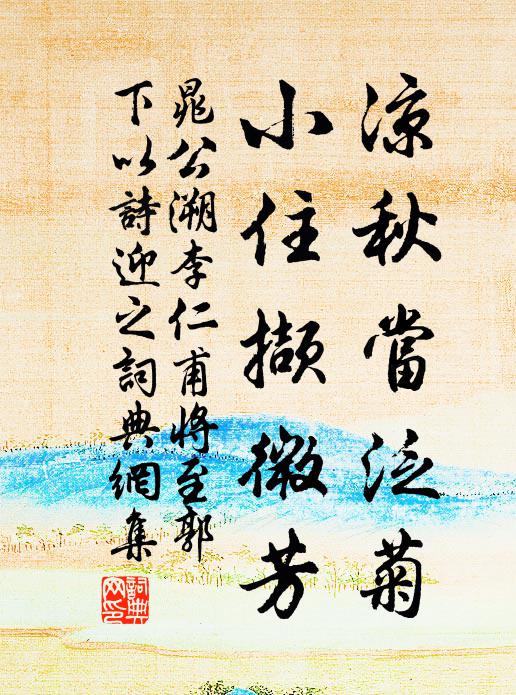 涼秋當泛菊
小住擷微芳
晁公溯李仁甫將至郭
下以詩迎之詞典網集